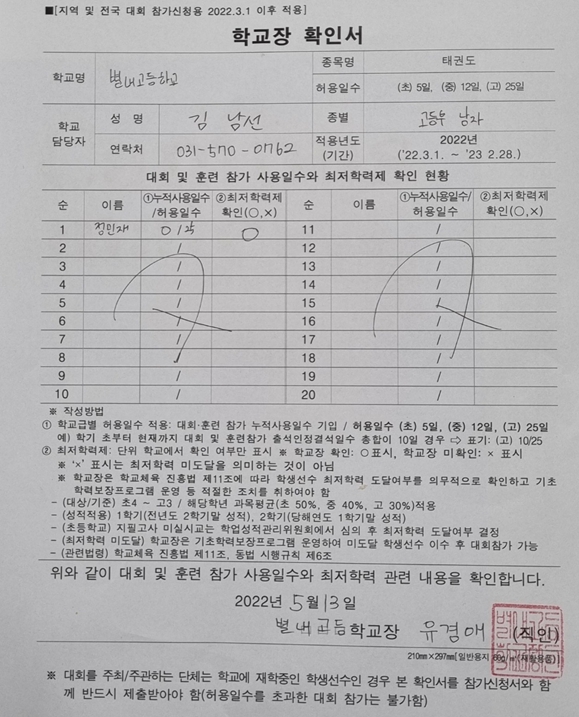 ■[지역 및 전국 대회 참가신청용 2022.3.1 이후 적용]
학교장 확인서
학교명 별내고등학교 종목명 태권도
허용일수 (초) 5일, (중) 12일, (고) 25일
학교 담당자 성 명 김 남선 종별 고등부 남자
연락처 031-570-0762 적용년도 (기간) 2022년 ('22.3.1. ~ '23 2.28.)
대회 및 훈련 참가 사용일수와 최저학력제 확인 현황
순 이름 ①누적사용일수/허용일수 ②최저학력제 확인(○,×) 순 이름 ①누적사용일수/허용일수 ②최저학력제 확인(○,×)
1 정민재 0 / 25 ○ 11 /
2 / 12 /
3 / 13 /
4 / 14 /
5 / 15 /
6 / 16 /
7 / 17 /
8 / 18 /
9 / 19 /
10 / 20 /
※ 작성방법
① 학교급별 허용일수 적용: 대회·훈련 참가 누적사용일수 기입 / 허용일수 (초) 5일, (중) 12일, (고) 25일
예) 학기 초부터 현재까지 대회 및 훈련참가 출석인정결석일수 총합이 10일 경우 ⇨ 표기: (고) 10/25
② 최저학력제: 단위 학교에서 확인 여부만 표시 ※ 학교장 확인: ○표시, 학교장 미확인: × 표시
※ '×' 표시는 최저학력 미도달을 의미하는 것이 아님
※ 학교장은 학교체육 진흥법 제11조에 따라 학생선수 최저학력 도달여부를 의무적으로 확인하고 기초
학력보장프로그램 운영 등 적절한 조치를 취하여야 함
- (대상/기준) 초4 ~ 고3 / 해당학년 과목평균(초 50%, 중 40%, 고 30%)적용
- (성적적용) 1학기(전년도 2학기말 성적), 2학기(당해연도 1학기말 성적)
- (초등학교) 지필고사 미실시교는 학업성적관리위원회에서 심의 후 최저학력 도달여부 결정
- (최저학력 미도달) 학교장은 기초학력보장프로그램 운영하여 미도달 학생선수 이수 후 대회참가 가능
- (관련법령) 학교체육 진흥법 제11조, 동법 시행규칙 제6조
위와 같이 대회 및 훈련 참가 사용일수와 최저학력 관련 내용을 확인합니다.
2022년 5월 13일
별내고등학교장 유경애 (직인)
210mm×297mm[일반용지 60g/㎡(재활용품)]
※ 대회를 주최/주관하는 단체는 학교에 재학중인 학생선수인 경우 본 확인서를 참가신청서와 함
께 반드시 제출받아야 함(허용일수를 초과한 대회 참가는 불가함)